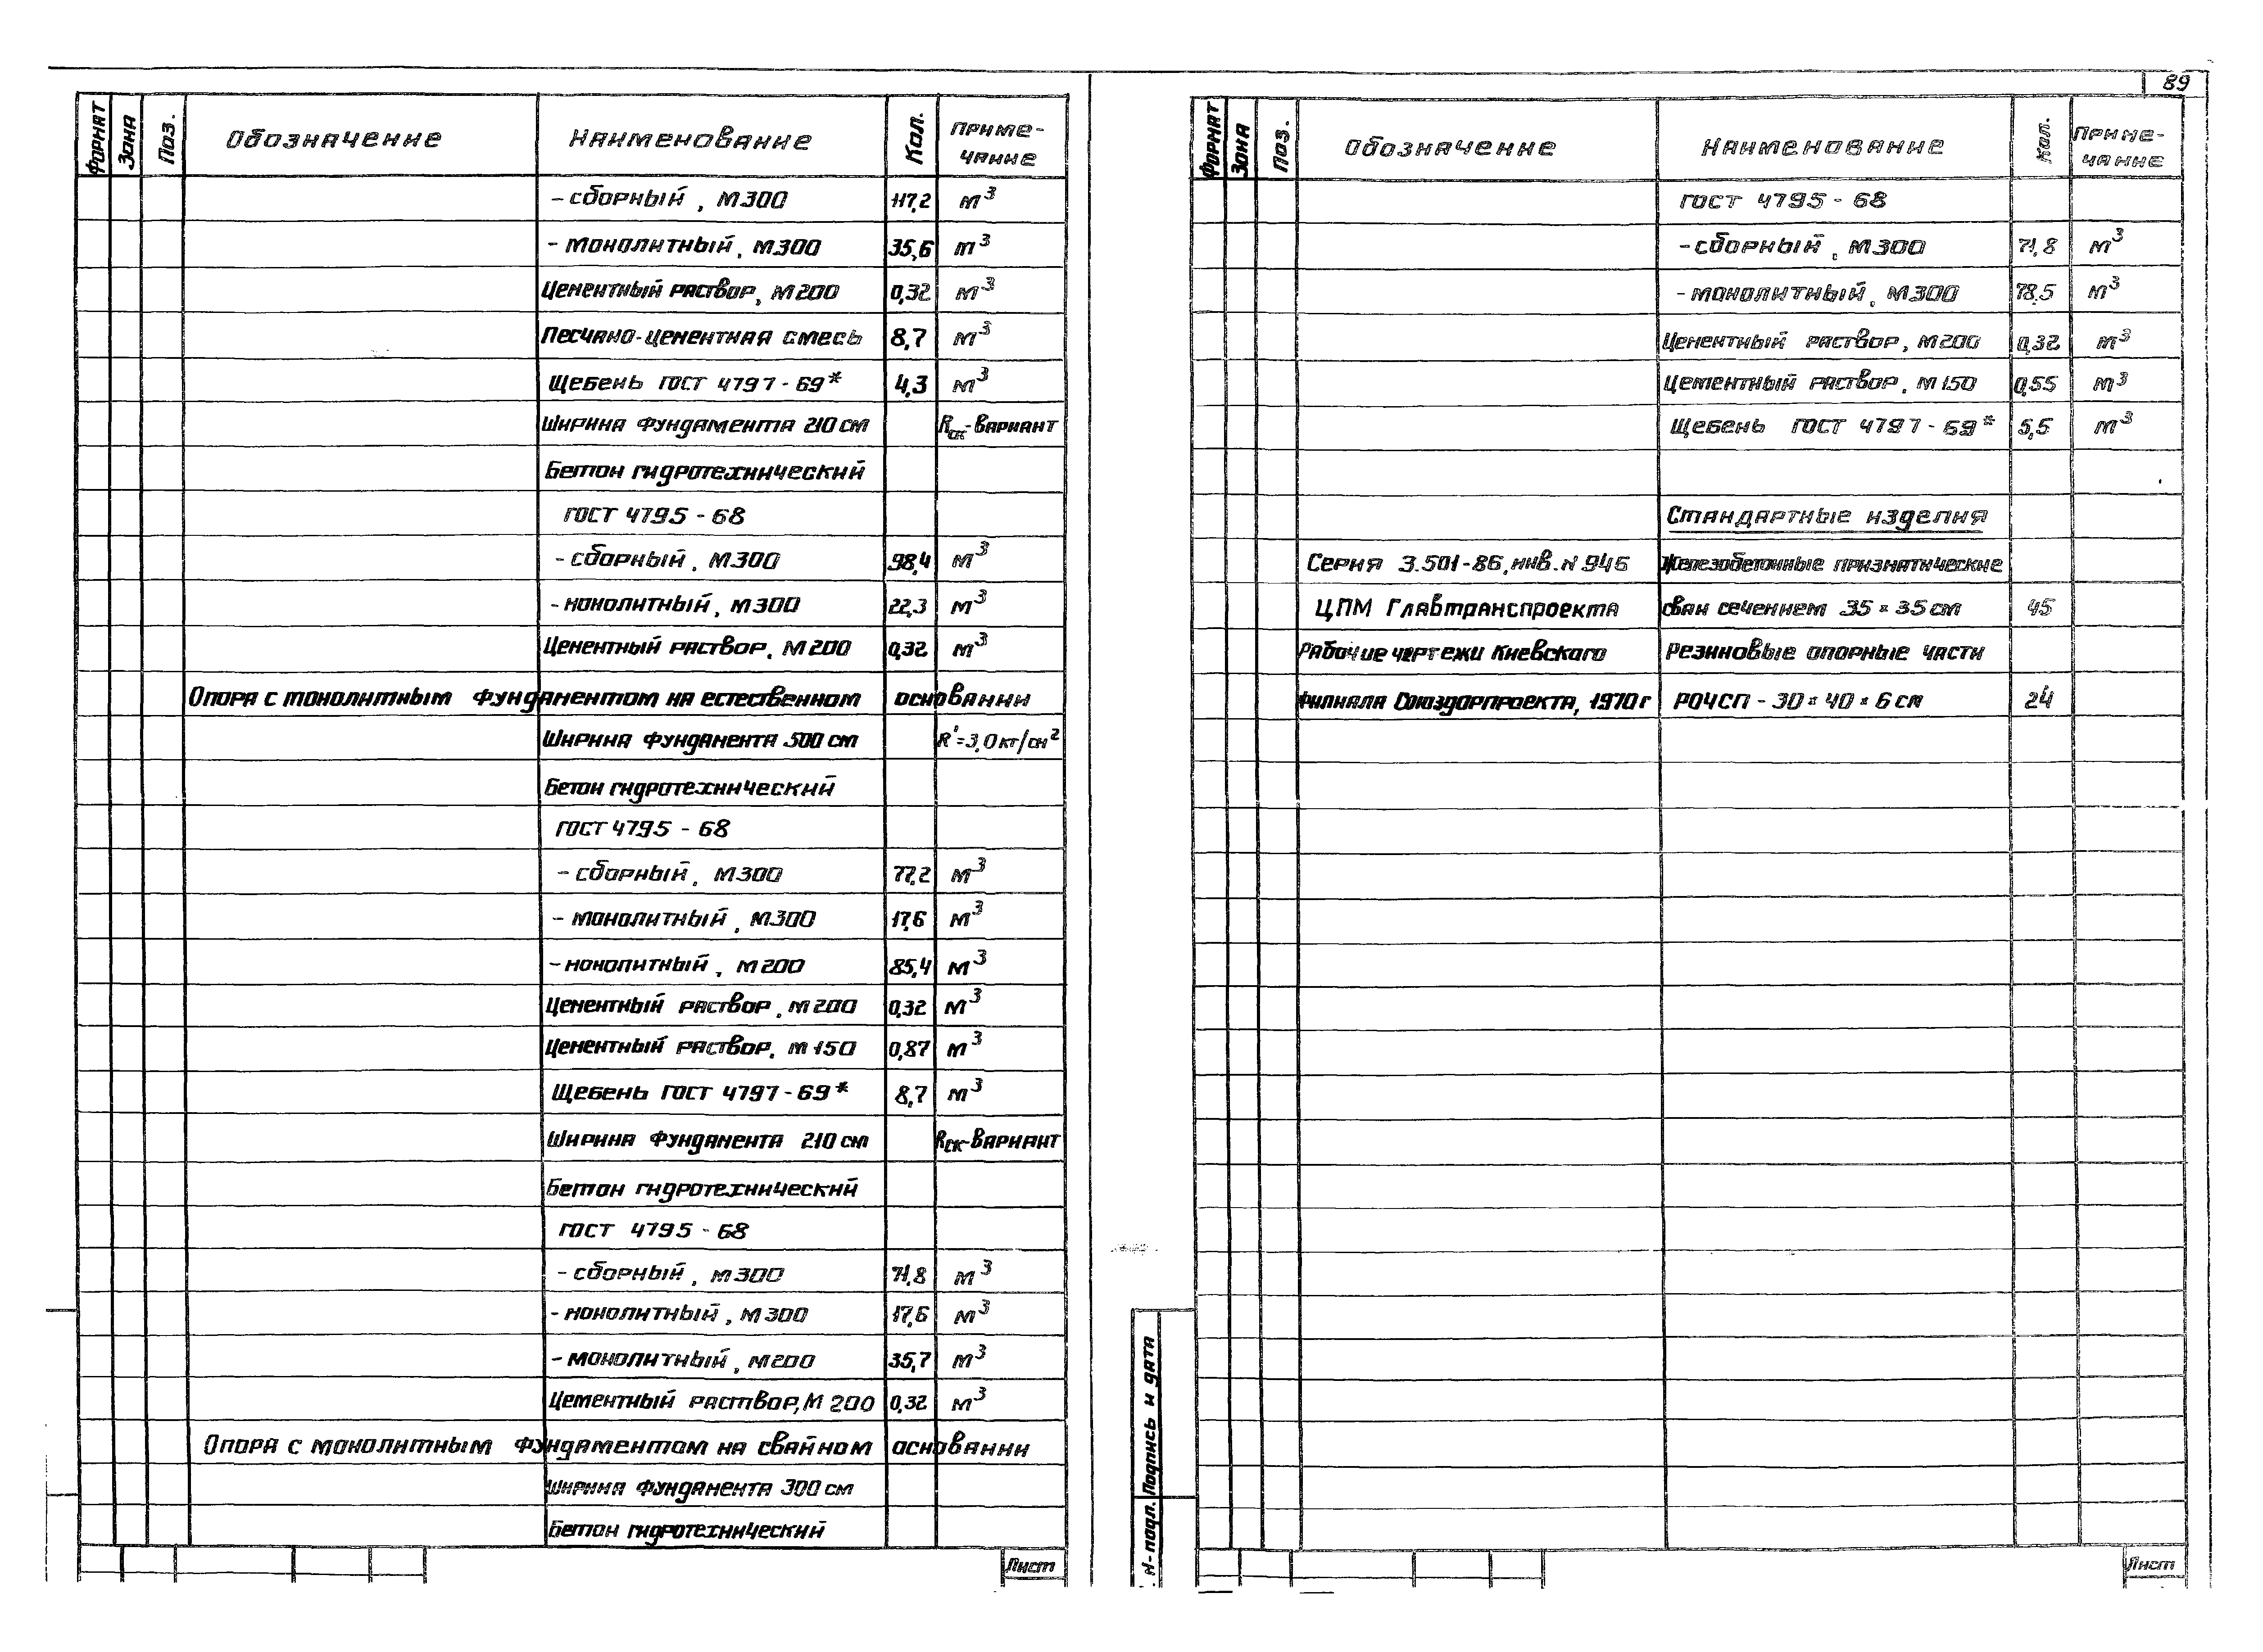 89
Формат Зона Поз. Обозначение Наименование Кол. Приме-
чание
- сборный, М300 117,2 м³
- монолитный, М300 35,6 м³
Цементный раствор, М200 0,32 м³
Песчано-цементная смесь 8,7 м³
Щебень ГОСТ 4797-69* 4,3 м³
Ширина фундамента 210 см Rск-вариант
Бетон гидротехнический
ГОСТ 4795-68
- сборный, М300 98,4 м³
- монолитный, М300 22,3 м³
Цементный раствор, М200 0,32 м³
Опора с монолитным фундаментом на естественном основании
Ширина фундамента 500 см R'=3,0 кг/см²
Бетон гидротехнический
ГОСТ 4795-68
- сборный, М300 77,2 м³
- монолитный, М300 17,6 м³
- монолитный, М200 85,4 м³
Цементный раствор, М200 0,32 м³
Цементный раствор, М150 0,87 м³
Щебень ГОСТ 4797-69* 8,7 м³
Ширина фундамента 210 см Rск-вариант
Бетон гидротехнический
ГОСТ 4795-68
- сборный, М300 71,8 м³
- монолитный, М300 17,6 м³
- монолитный, М200 35,7 м³
Цементный раствор, М200 0,32 м³
Опора с монолитным фундаментом на свайном основании
Ширина фундамента 300 см
Бетон гидротехнический
Лист
Формат Зона Поз. Обозначение Наименование Кол. Приме-
чание
ГОСТ 4795-68
- сборный, М300 71,8 м³
- монолитный, М300 78,5 м³
Цементный раствор, М200 0,32 м³
Цементный раствор, М150 0,55 м³
Щебень ГОСТ 4797-69* 5,5 м³
Стандартные изделия
Серия 3.501-86, инв. N 946 Железобетонные призматические
ЦПМ Главтранспроекта сваи сечением 35×35 см 45
Рабочие чертежи Киевского Резиновые опорные части
филиала Союздорпроекта, 1970г РОЧСП - 30×40×6 см 24
Подпись и дата
N-подл.
Лист